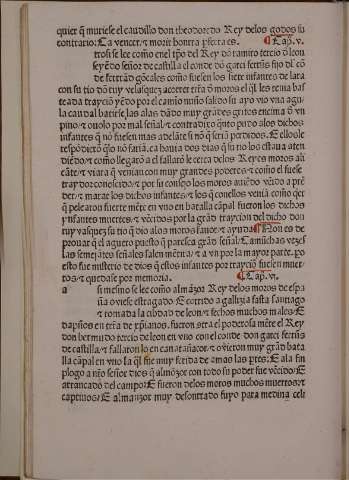 quier q̃ muriese el caudillo don theodoredo Rey delos godos su
contrario: Ca vencer ⁊ morir honrra ꝑfecta es. ¶ Cap. v.
trosi se lee como enel tp̃o del Rey dõ ramiro tercio ð leon
seyẽdo señor de castilla el conde dõ garci ferrãs fijo ðl cõ
de ferrãd gõçales como fuesen los siete infantes de lara
con su tio dõ ruy velasquez a correr trr̃a ð moros el q̃l les tenia bas
teada traycio yẽdo por el camino nuño salido su ayo vio vna agu
la caudal batirse las alas dãdo muy grãdes gritos encima ð vn
pino: ⁊ ouolo por mal señal: ⁊ contradixo quãto pudo alos dichos
infantes q̃ nõ fuesen mas adelãte si nõ q̃ seriã perdidos. E ellos le
respõdierõ q̃ lo nõ fariã. ca hauia dos dias q̃ su tio los estaua aten
diẽdo: ⁊ como llegarõ a el fallarõ le cerca delos Reyes moros ali
cãte: ⁊ viara q̃ venian con muy grandes poderes: ⁊ como el fuese
traydor conoscido: ⁊ por su consejo los moros auiẽdo vẽcido a prẽ
der: ⁊ matar los dichos infantes: ⁊ los q̃ conellos veniã como q̃er
q̃ pelearon fuerte mẽte en vno en batalla cãpal fueron los dichos
ynfantes muertos. ⁊ vẽcidos por la grãd traycion del dicho don
ruy vasquez su tio q̃ dio alos moros fauor: ⁊ ayuda ¶ Non es de
prouar q̃ el aguero puesto q̃ paresca grãd señal: Ca muchas vezes
las semejãtes señales salen mẽtira: ⁊ a vn por la mayor parte. po
esto fue misterio de dios q̃ estos infantes por traycio fuesen muer
tos: ⁊ quedase por memoria. ¶ Cap. vi.
a si mesmo se lee como almãzor Rey delos moros de espa
ña ouiese estragado E corrido a gallizia fasta santiago
⁊ tomada la cibdad de leon: ⁊ fechos muchos males: E
dapños en trr̃a de xp̃ianos. fueron stra el poderosa mẽte el Rey
don bermudo tercio de leon en vno conel conde don garci ferrãs
de castilla: ⁊ fallaron lo en canatañaçor: ⁊ ouieron muy grãd bata
lla cãpal en vno la q̃l fue muy ferida de amas las ptes: E ala fin
plogo a nr̃o señor dios q̃ almõzor con todo su poder fue vẽcido: E
arrancado del campo: E fueron delos moros muchos muertos: ⁊
captiuos: E almanzor muy desonrrado fuyo para medina celi